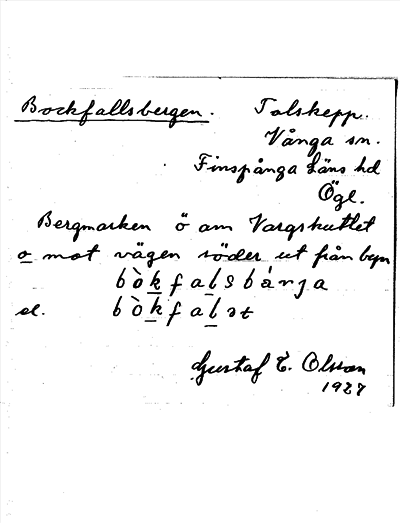 Bockfallsbergen. Tolskepp.
Vånga sn.
Finspånga Läns hd
Ögl.
Bergmarken ö om Vargskuttet
o mot vägen söder ut från byn
bòkfalsbárja
el. bòkfalet
Gustaf E. Olsson
1927